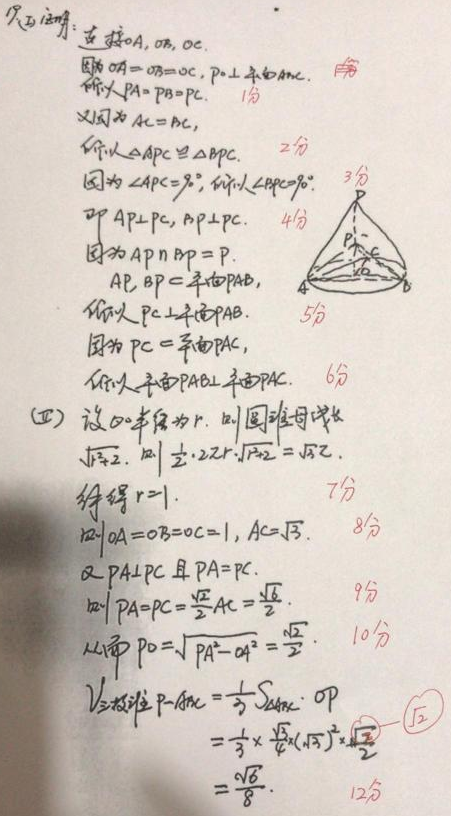 (I) 证明:
连接OA, OB, OC.
因为 OA=OB=OC, PO⊥平面ABC.
所以 PA=PB=PC. 1分
又因为 AC=BC,
所以 △APC≌△BPC. 2分
因为 ∠APC=90°, 所以 ∠BPC=90°. 3分
即 AP⊥PC, BP⊥PC. 4分
因为 AP∩BP=P.
AP, BP⊂平面PAB,
所以 PC⊥平面PAB. 5分
因为 PC⊂平面PAC,
所以 平面PAB⊥平面PAC. 6分
D
P
C
A
O
B
(II) 设⊙O半径为r. 则圆锥母线长
√r²+2. 则 1/2·2πr·√r²+2=√3π.
解得 r=1. 7分
则 OA=OB=OC=1, AC=√3. 8分
又 PA⊥PC 且 PA=PC.
则 PA=PC=√2/2 AC=√6/2. 9分
从而 PO=√PA²-OA²=√2/2. 10分
V三棱锥P-ABC=1/3 S△ABC·OP
=1/3×√3/4×(√3)²×√2/2
√2
=√6/8. 12分